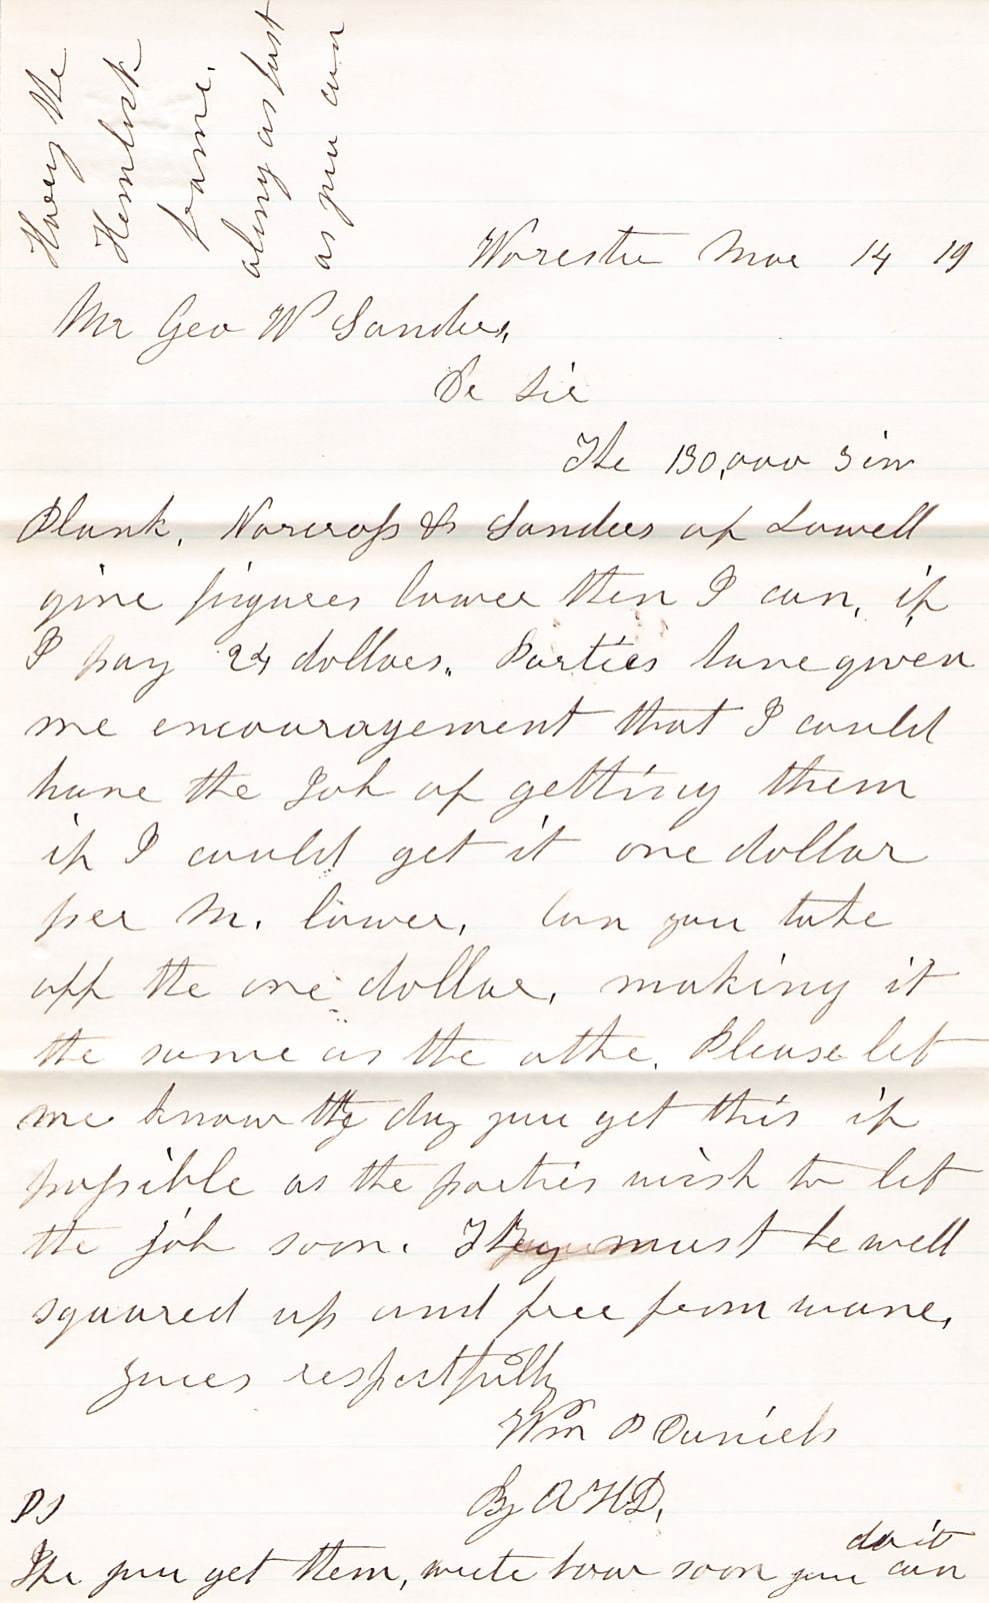 Worcester Mar 14 19
Mr Geo W Sanders,
De Sir
The 130,000 3 in
Plank, Norcross & Sanders of Lowell
give figures lower then I can, if
I pay 24 dollars. Parties have given
me encouragement that I could
have the Job of getting them
if I could get it one dollar
per M. lower. Can you take
off the one dollar, making it
the same as the othe. Please let
me know the day you get this if
possible as the parties wish to let
the job soon. They must be well
squared up and free from wane,
yours respectfully
Wm P Daniels
By A H D.
PS
If you get them, write how soon you can do it
Hurry the
Hemlock
frame.
along as fast
as you can